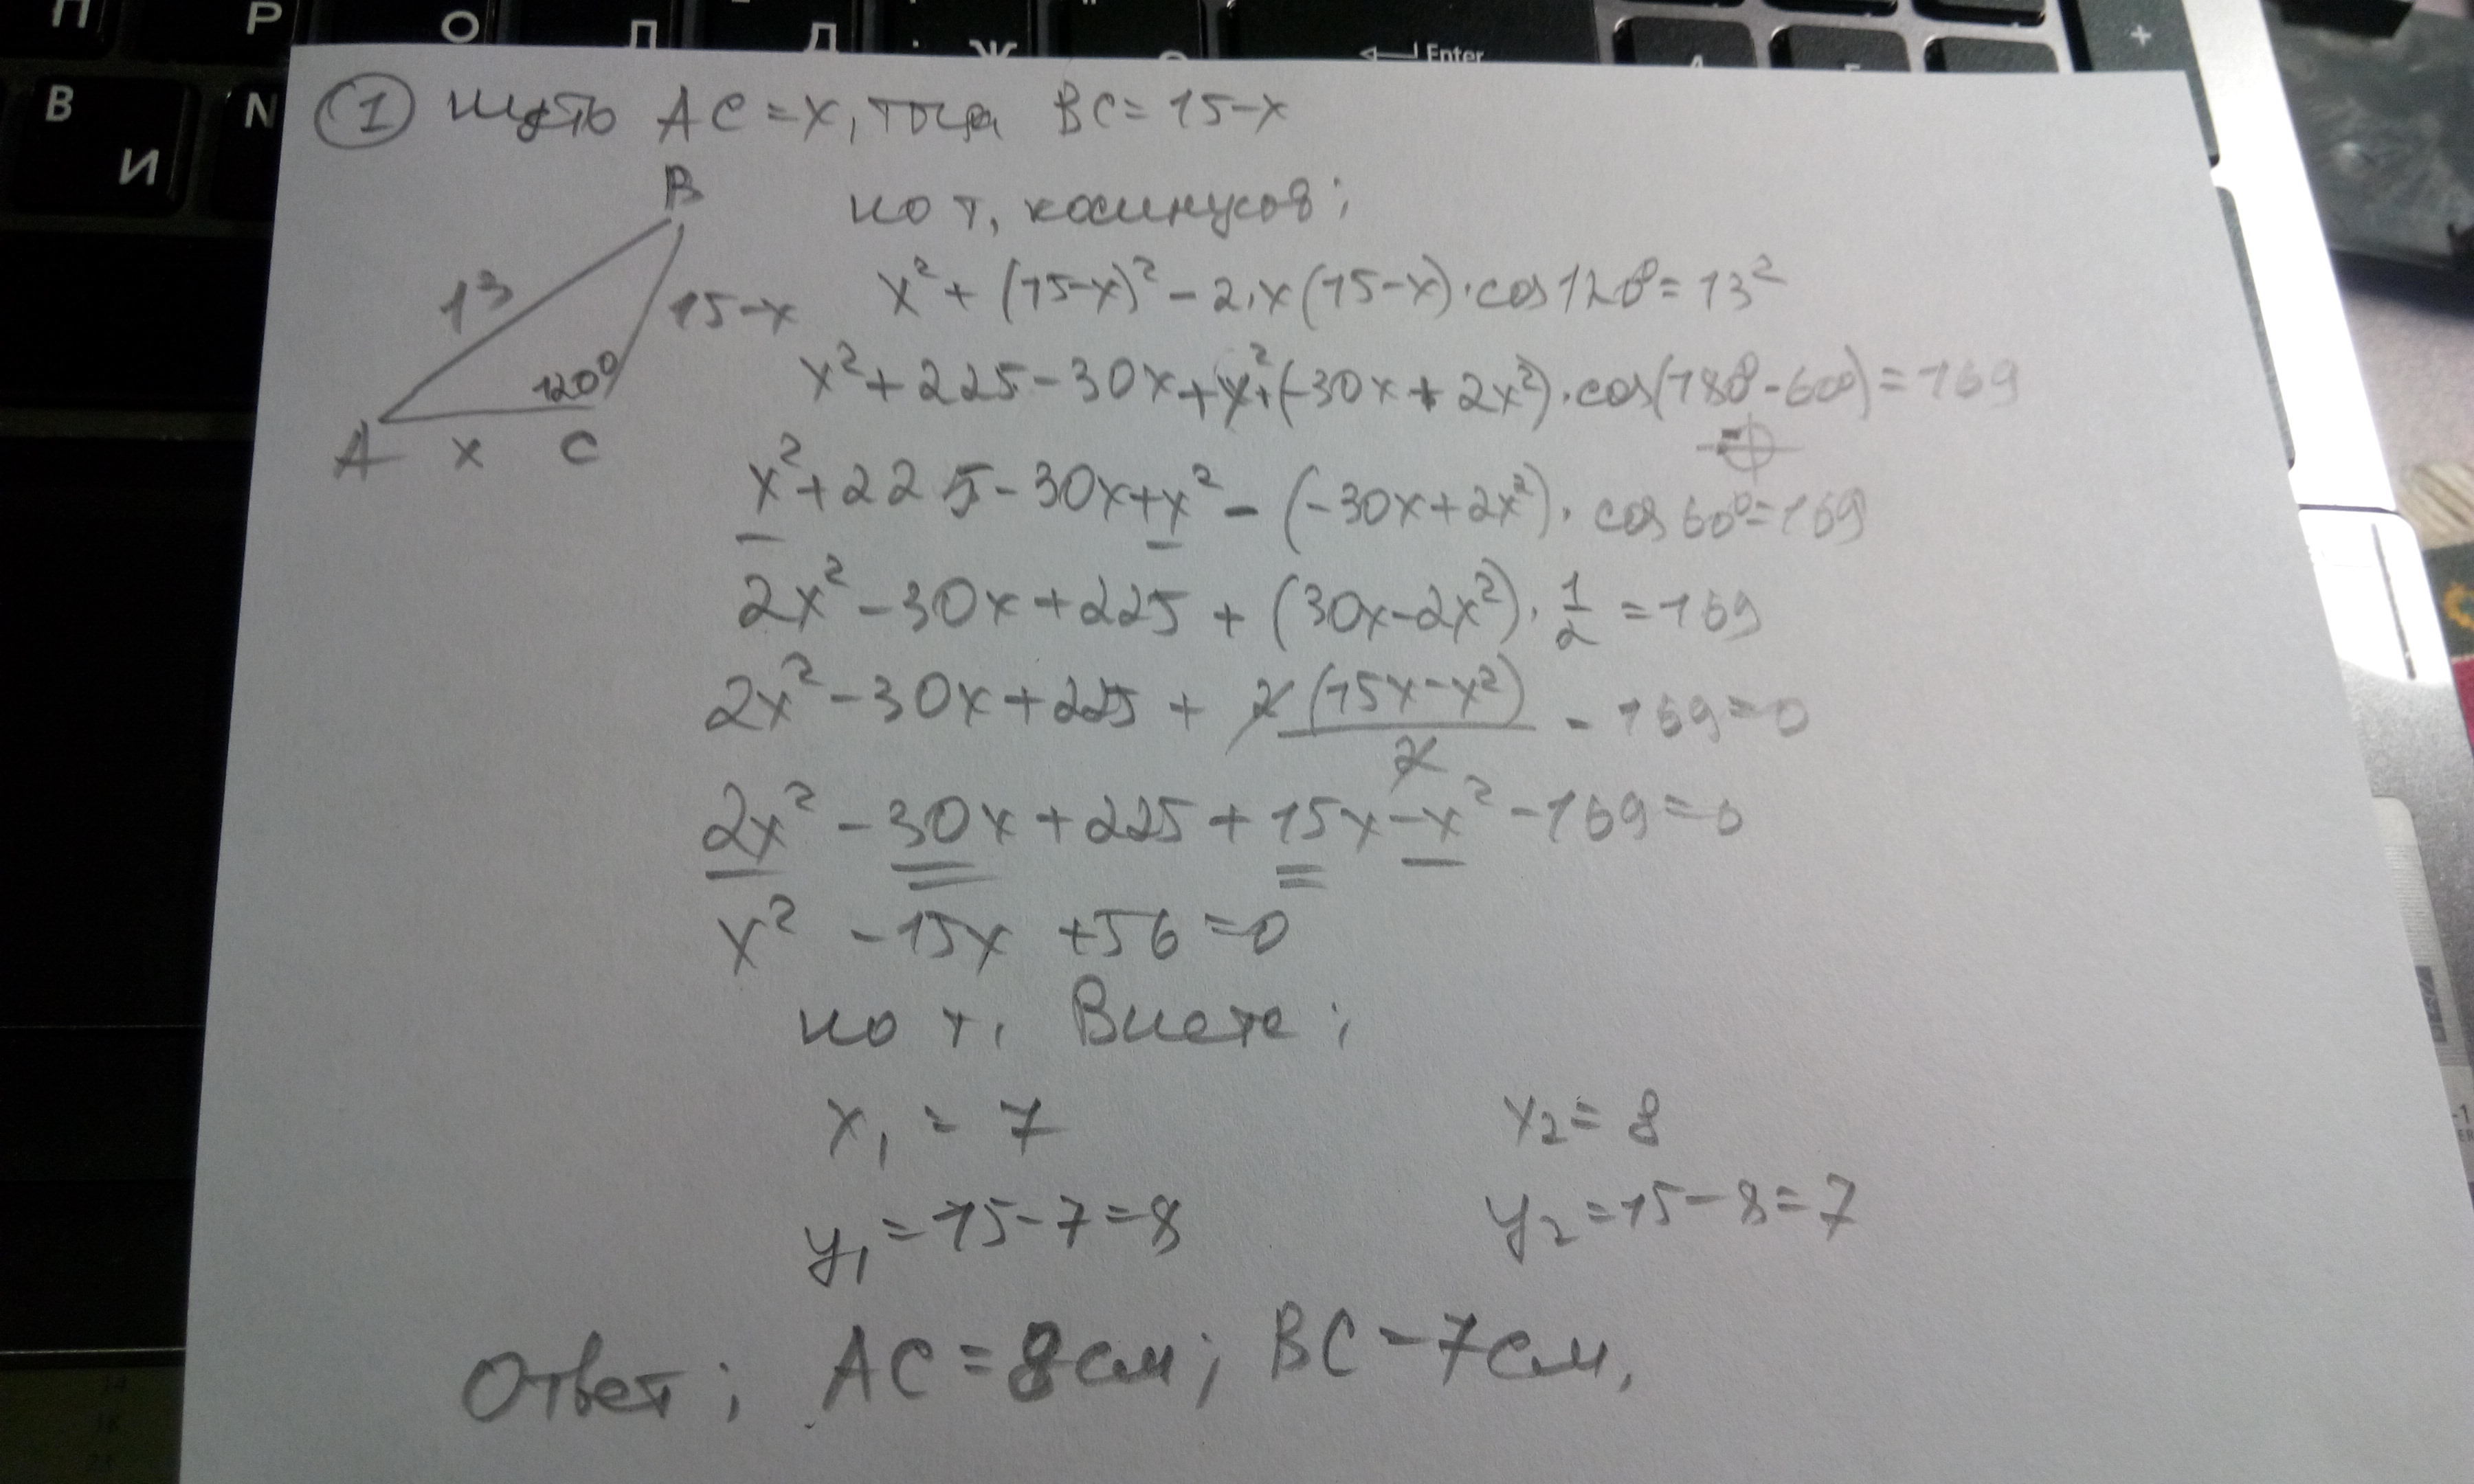 П Р О Л Д Ж
Enter
+
В И N
① Пусть AC = x, тогда BC = 15-x
B
по т. косинусов:
13
15-x
120°
A x C
x² + (15-x)² - 2·x(15-x)·cos120° = 13²
x² + 225 - 30x + x² + (-30x + 2x²)·cos(180°-60°) = 169
x² + 225 - 30x + x² - (-30x + 2x²)·cos60° = 169
2x² - 30x + 225 + (30x - 2x²)·1/2 = 169
2x² - 30x + 225 + 2(15x - x²)/2 - 169 = 0
2x² - 30x + 225 + 15x - x² - 169 = 0
x² - 15x + 56 = 0
по т. Виета:
x₁ = 7 x₂ = 8
y₁ = 15-7=8 y₂ = 15-8=7
Ответ: AC = 8см; BC - 7см.